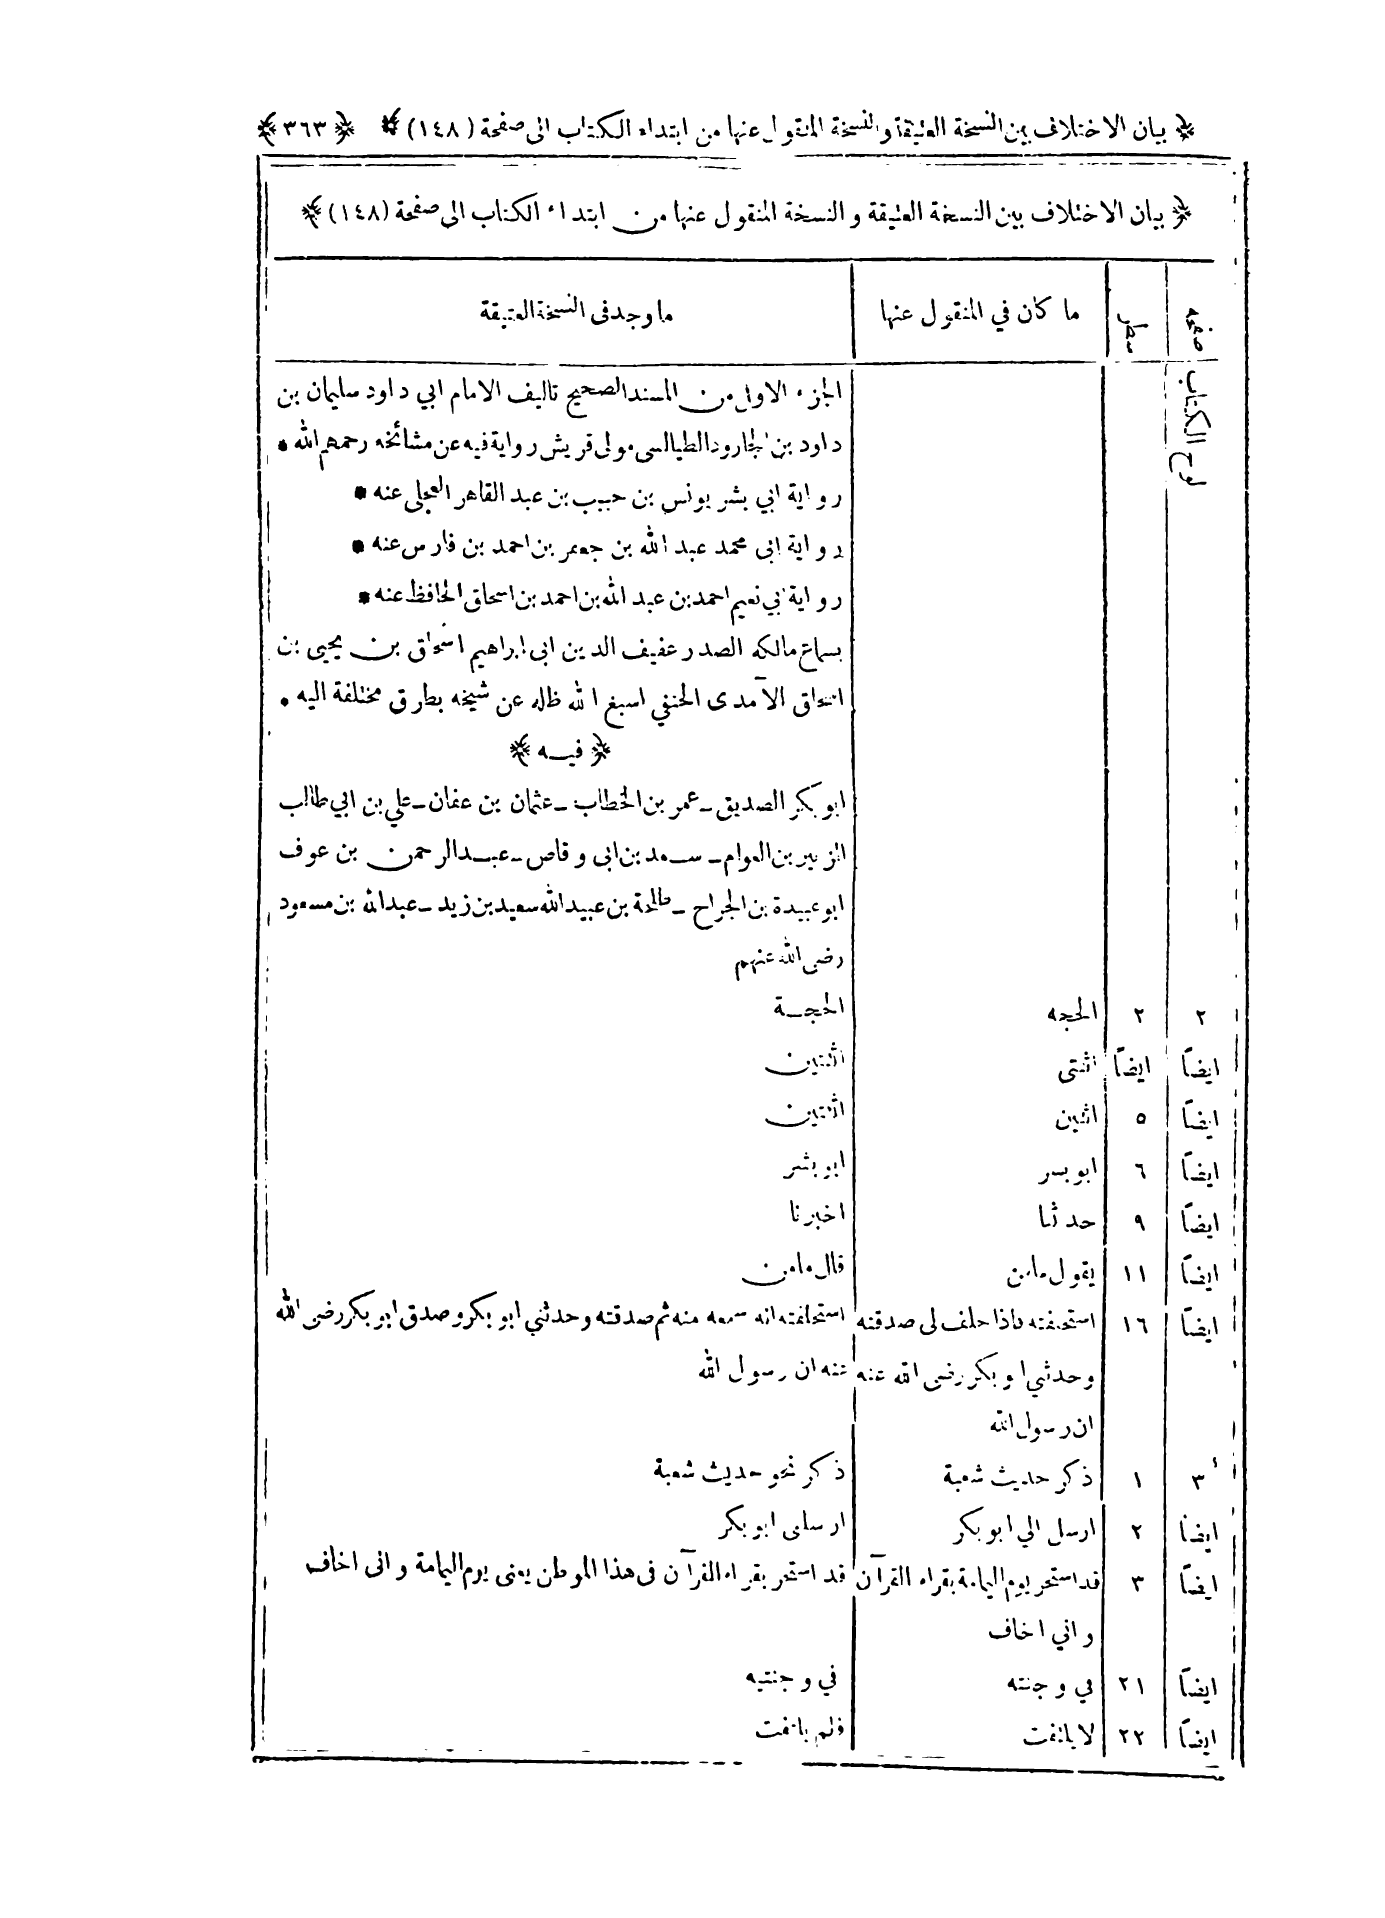 ﴿ بيان الاختلاف بين النسخة العتيقة والنسخة المنقول عنها من ابتداء الكتاب الى صفحة (١٤٨) ﴾ ﴿ ٣٦٣ ﴾
﴿ بيان الاختلاف بين النسخة العتيقة والنسخة المنقول عنها من ابتداء الكتاب الى صفحة (١٤٨) ﴾
صفحه سطر ما كان في المنقول عنها ما وجد فى النسخة العتيقة
لوح الكتاب الجزء الاول من المسند الصحيح تاليف الامام ابي داود سليمان بن
داود بن الجارود الطيالسى مولى قريش رواية فيه عن مشائخه رحمهم الله •
رواية ابي بشر يونس بن حبيب بن عبد القاهر العجلى عنه •
رواية ابى محمد عبد الله بن جعفر بن احمد بن فارس عنه •
رواية ابي نعيم احمد بن عبد الله بن احمد بن اسحاق الحافظ عنه •
بسماع مالكه الصدر عفيف الدين ابى ابراهيم اسحاق بن يحيى بن
اسحاق الآمدى الحنفي اسبغ الله ظله عن شيخه بطرق مختلفة اليه •
﴿ فيه ﴾
ابوبكر الصديق ـ عمر بن الخطاب ـ عثمان بن عفان ـ علي بن ابي طالب
الزبير بن العوام ـ سعد بن ابى وقاص ـ عبد الرحمن بن عوف
ابو عبيدة بن الجراح ـ طلحة بن عبيدالله سعيد بن زيد ـ عبدالله بن مسعود
رضى الله عنهم
٢ ٢ الحجه الحجة
ايضاً ايضاً اثنتى اثنتين
ايضاً ٥ اثنين اثنتين
ايضاً ٦ ابو بسر ابو بشر
ايضاً ٩ حدثنا اخبرنا
ايضاً ١١ يقول مامن قال مامن
ايضاً ١٦ استحلفته فاذا حلف لى صدقته استحلفته انه سمعه منه ثم صدقته وحدثني ابو بكر وصدق ابو بكر رضى الله
وحدثني ابو بكر رضى الله عنه عنه ان رسول الله
ان رسول الله
٣ ١ ذكر حديث شعبة ذكر نحو حديث شعبة
ايضاً ٢ ارسل الي ابو بكر ارسلنى ابو بكر
ايضاً ٣ قد استحر يوم اليمامة بقراء القرآن قد استحر بقراء القرآن فى هذا الموطن يعنى يوم اليمامة وانى اخاف
واني اخاف
ايضاً ٢١ في وجنته في وجنتيه
ايضاً ٢٢ لا يلتفت فلم يلتفت